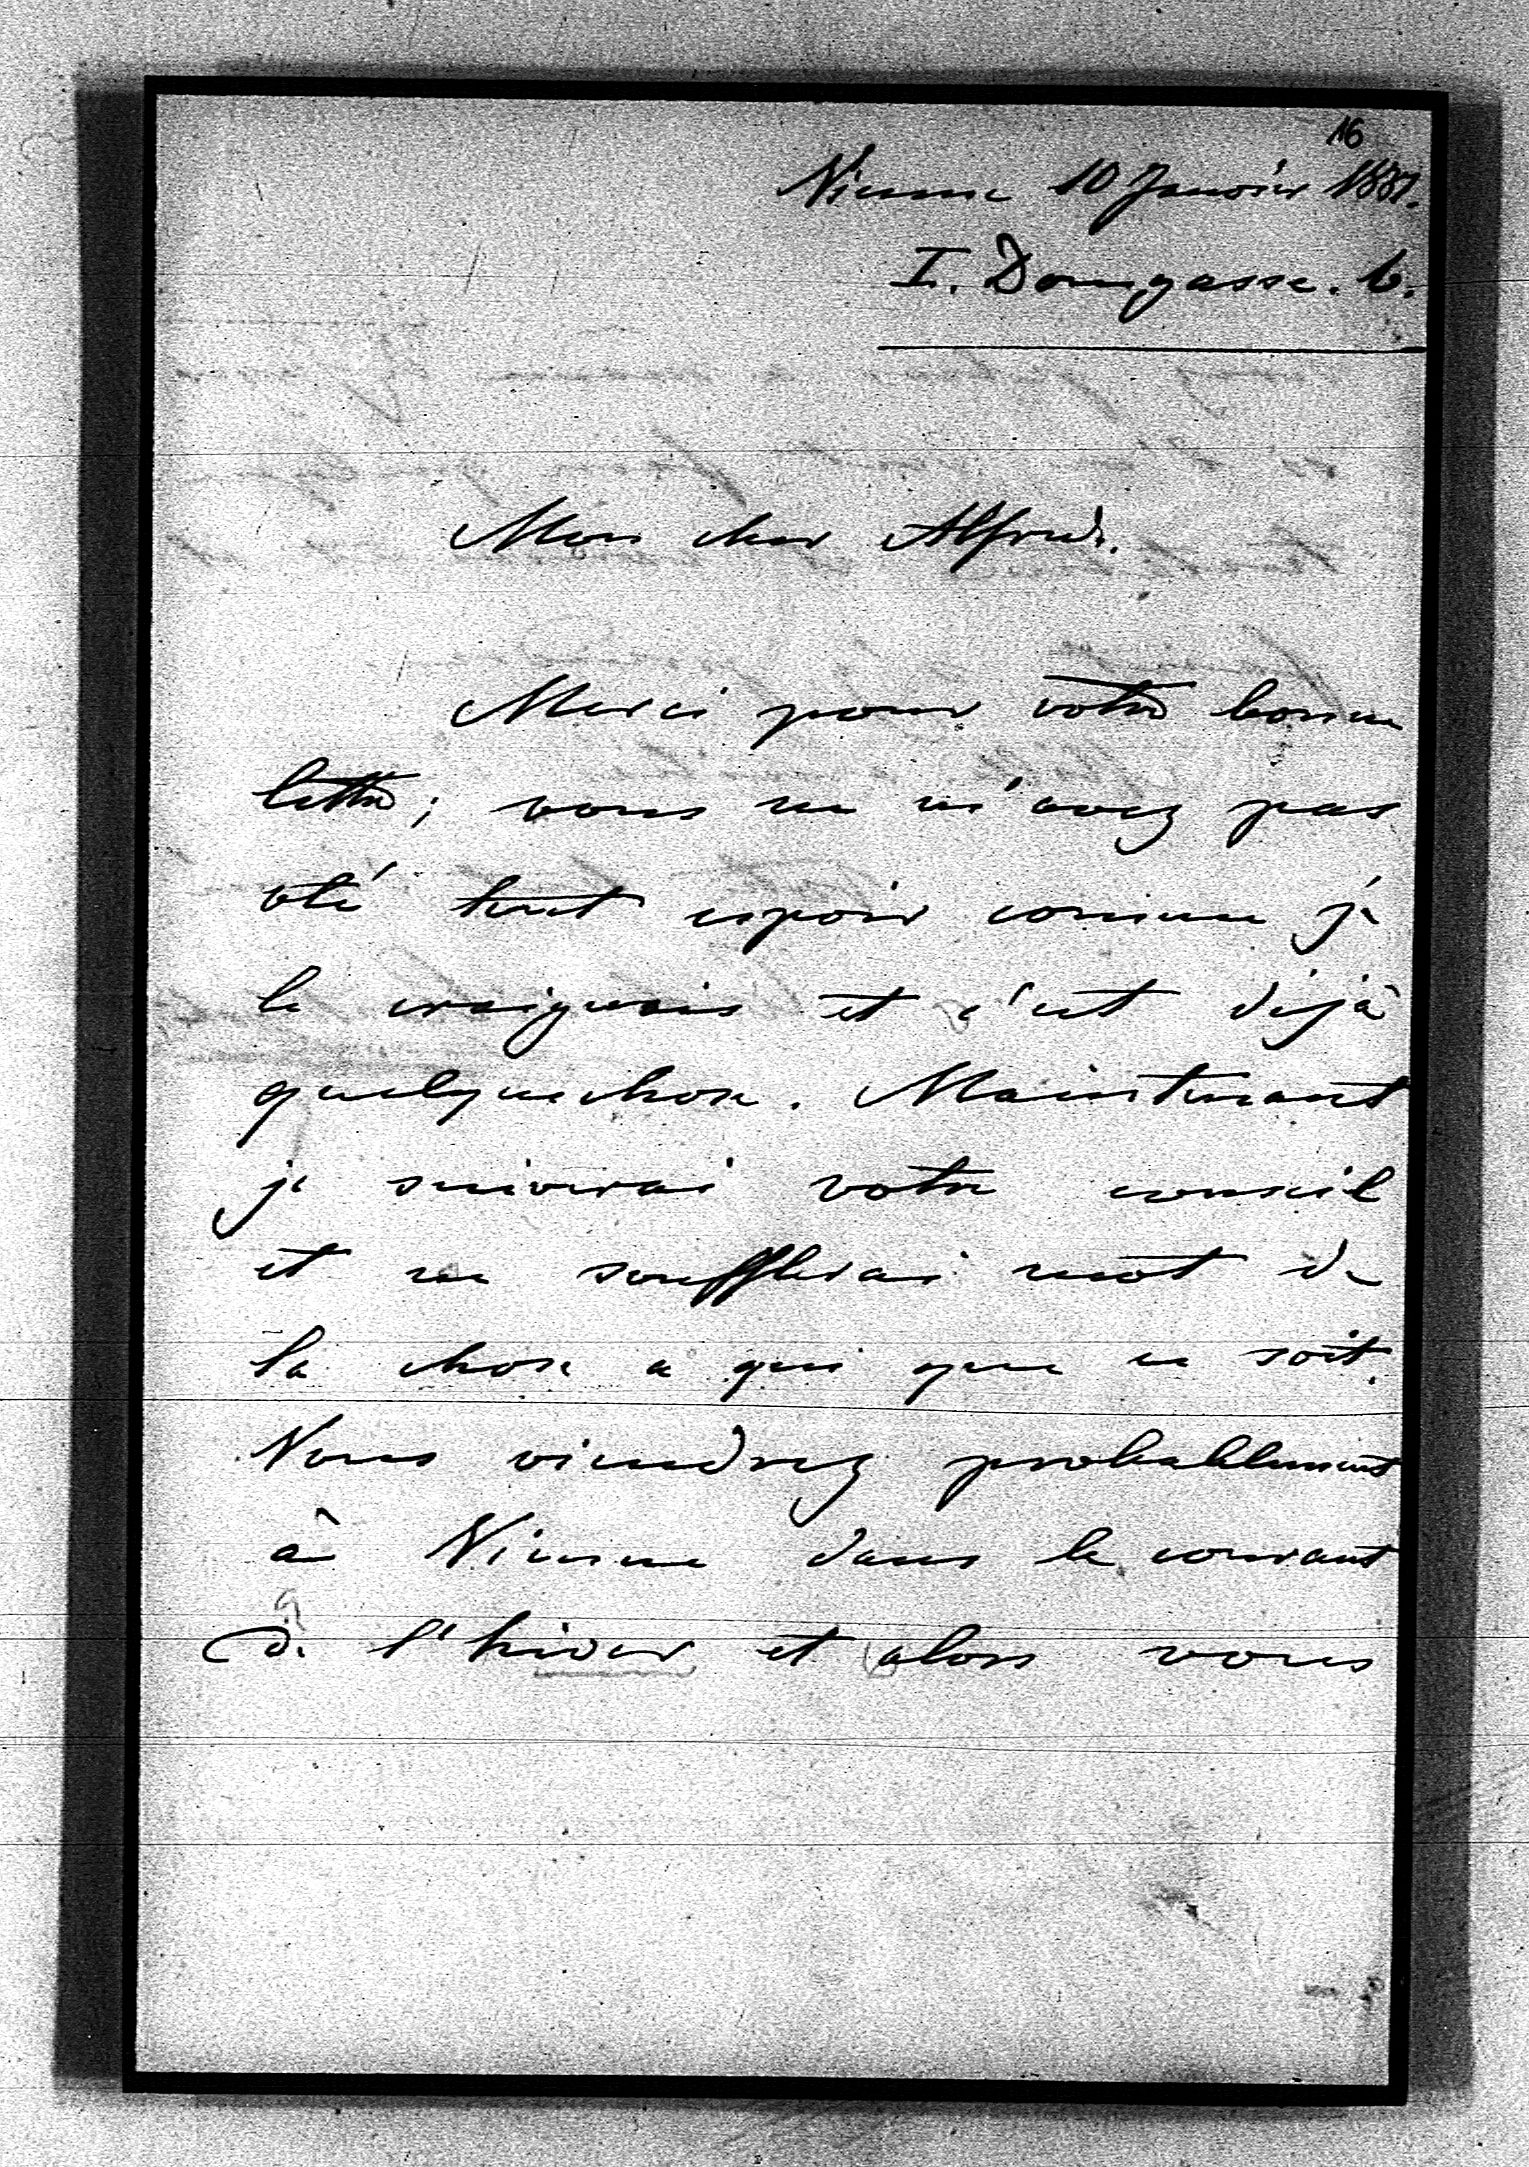 16
Vienne 10 Janvier 1887.
I. Domgasse. 6.
Mon cher Alfred.
Merci pour votre bonne
lettre; vous ne m'avez pas
oté tout espoir comme je
le craignais et c'est déjà
quelquechose. Maintenant
je suiverai votre conseil
et ne soufflerai mot de
la chose a qui que ce soit.
Vous viendrez probablement
à Vienne dans le courant
de l'hiver et alors vous